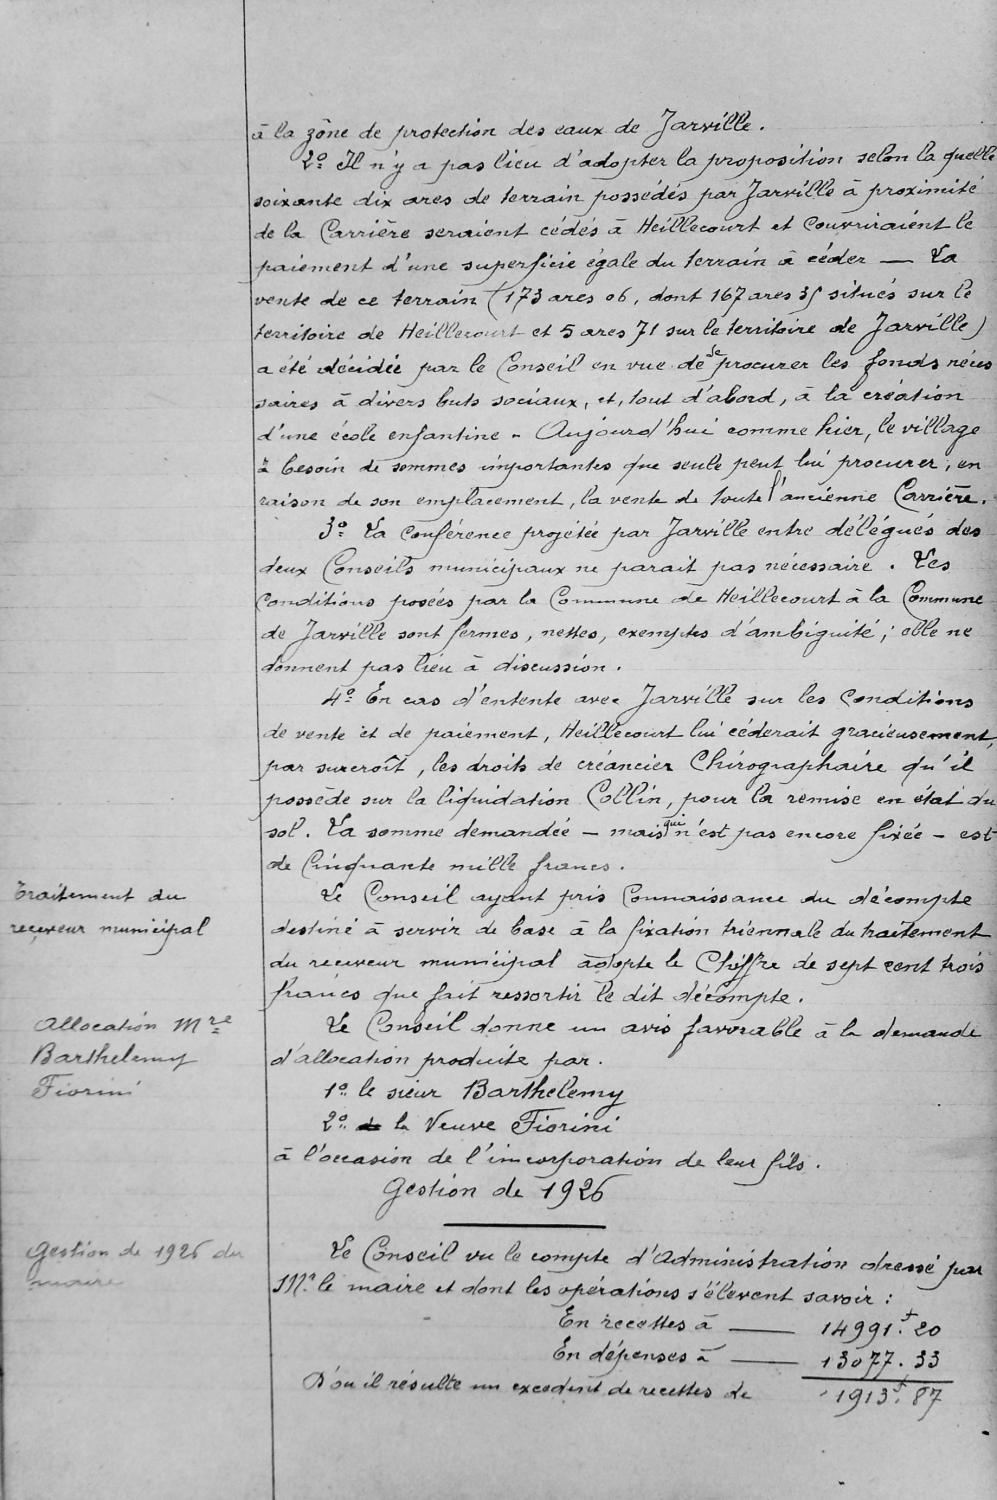 à la zône de protection des eaux de Jarville.
2º Il n'y a pas lieu d'adopter la proposition selon la quelle
soixante dix ares de terrain possédés par Jarville à proximité
de la Carrière seraient cédés à Heillecourt et couvriraient le
paiement d'une superficie égale du terrain à céder — La
vente de ce terrain (173 ares 06, dont 167 ares 35 situés sur le
territoire de Heillecourt et 5 ares 71 sur le territoire de Jarville)
a été décidée par le Conseil en vue de se procurer les fonds néces
saires à divers buts sociaux, et, tout d'abord, à la création
d'une école enfantine - Aujourd'hui comme hier, le village
a besoin de sommes importantes que seule peut lui procurer, en
raison de son emplacement, la vente de toute l'ancienne Carrière.
3º La conférence projetée par Jarville entre délégués des
deux Conseils municipaux ne parait pas nécessaire. Les
conditions posées par la Commune de Heillecourt à la Commune
de Jarville sont fermes, nettes, exemptes d'ambiguité; elle ne
donnent pas lieu à discussion.
4º En cas d'entente avec Jarville sur les conditions
de vente et de paiement, Heillecourt lui céderait gracieusement,
par surcroît, les droits de créancier Chirographaire qu'il
possède sur la liquidation Collin, pour la remise en état du
sol. La somme demandée - mais qui n'est pas encore fixée - est
de Cinquante mille francs.
Traitement du
receveur municipal
Le Conseil ayant pris Connaissance du décompte
destiné à servir de base à la fixation triennale du traitement
du receveur municipal adopte le Chiffre de sept cent trois
francs que fait ressortir le dit décompte.
Allocation Mre
Barthelemy
Fiorini
Le Conseil donne un avis favorable à la demande
d'allocation produite par.
1º le sieur Barthelemy
2º la Veuve Fiorini
à l'occasion de l'incorporation de leur fils.
Gestion de 1926
Gestion de 1926 du
maire
Le Conseil vu le compte d'Administration dressé par
Mr. le maire et dont les opérations s'élèvent savoir:
En recettes à — 14991f.20
En dépenses à — 13077.33
D'ou il résulte un excedent de recettes de 1913f.87